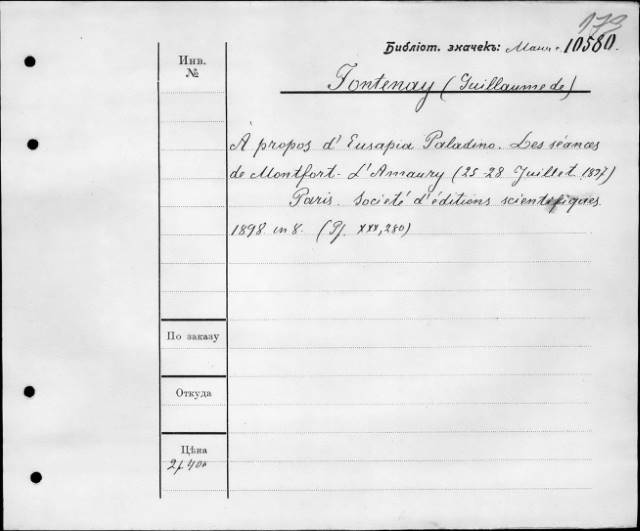 173
Библіот. значекъ: Маш. 10580.
Инв.
№
Fontenay (Guillaume de)
À propos d'Eusapia Paladino. Les séances
de Montfort-L'Amaury (25-28 Juillet 1897)
Paris. Societé d'éditions scientifiques
1898 in 8. (Pf. XXX, 280)
По заказу
Откуда
Цѣна